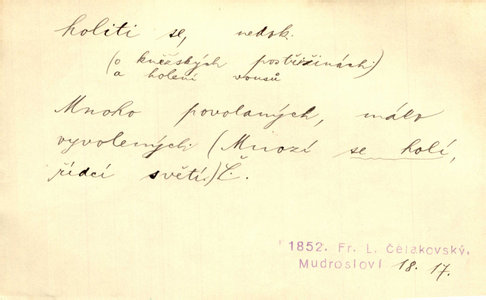 holiti se, nedok.
(o kněžských postřižinách)
a holení vousů
Mnoho povolaných, málo
vyvolených (Mnozí se holí,
řídcí světí.) Č.
1852. Fr. L. Čelakovský,
Mudrosloví 18. 17.